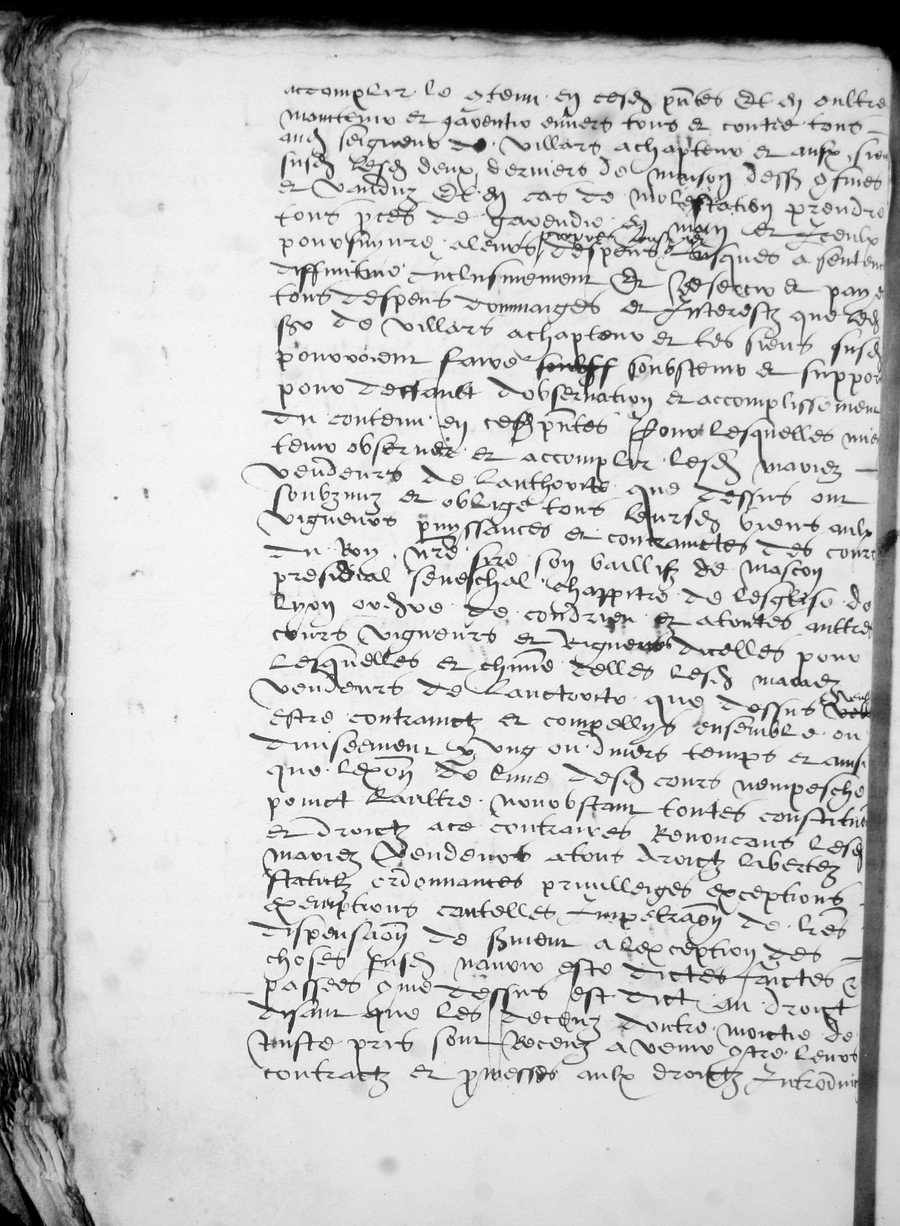 accomplir le 9tenu en cesd pntes Et en oultre
maintenir et garentir envers tous et contre tous
aud seigneur de villars achapteur et aulx siens
susd lesd deux derniers de maison dessus 9fines
et vanduz Et en cas de molestation prendre
tous pces de garendie en main et Iceulx
poursuyvre a leurs propres despens jusques a sentence
diffinitive Inclusivement Et Resercir et payer
tous despens dommaiges et Interestz que led
sr de villars achapteur et les siens susd
pourroient faire soubstenir et suppor
pour deffault dobservation et accomplissement
du contenu en cesd pntes Pour lesquelles
tenir observer et accomplir lesd mariez
vendeurs de lauthorite que dessus ont
soubzmiz et oblige tous leursd biens aulx
vigueurs puyssances et contrainctes des cours
du Roy nre sire son baillif de mascon
presidial seneschal chappitre de lesglise de
lyon ordre de condrieu et a toutes aultres
cours vigueurs et Rigueurs dicelles pour
lesquelles et chune delles lesd mariez
vendeurs de lauctorite que dessus
estre contrainctz et compellys ensemble ou
diviseement y ung ou divers temps et ainsi
que lexon de lune desd cours nempesche
poinct laultre nonobstant toutes constitu
et droictz a ce contraires Renoncans lesd
mariez Vendeurs a tous droictz libertez
statutz ordonnances privilleiges exceptions
exemptions cautelles Impetraon de lres
dispensaon de serment a lexception des
choses susd navoir este dictes faictes &
passees 9me dessus est dict au droict
disant que les deceuz doultre moictie de
juste pris sont Receuz a venir 9tre leurs
contractz et pmesses aulx droictz Introduic